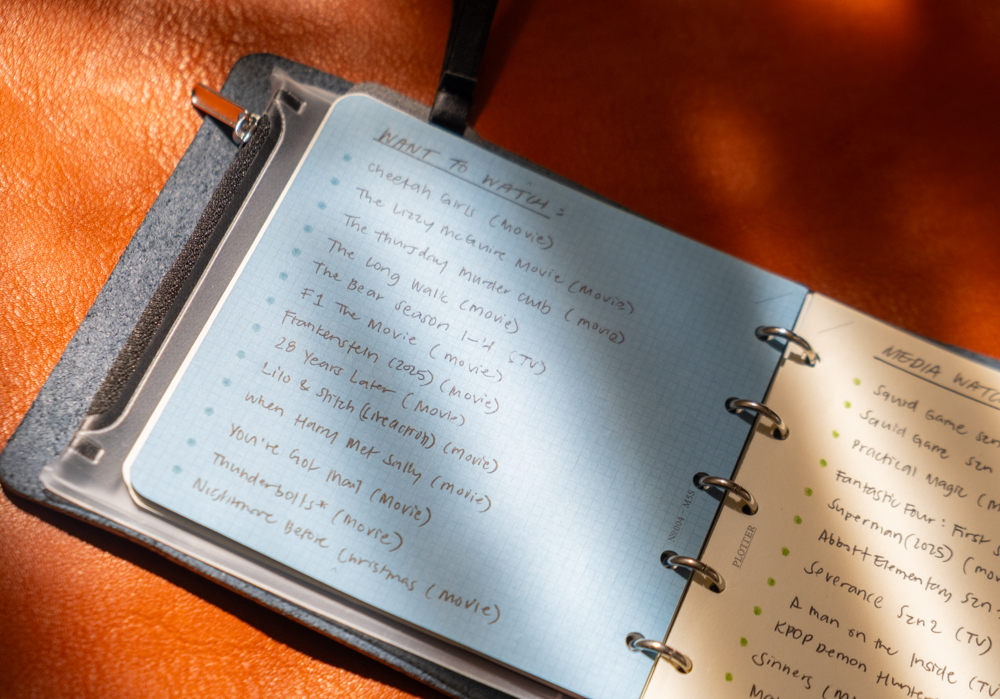 WANT TO WATCH:
Cheetah Girls (movie)
The Lizzy McGuire Movie (movie)
The Thursday Murder Club (movie)
The Long Walk (movie)
The Bear Season 1-4 (TV)
F1 The Movie (movie)
Frankenstein (2025) (movie)
28 Years Later (movie)
Lilo & Stitch (Live action) (movie)
When Harry Met Sally (movie)
You're Got Mail (movie)
Thunderbolts* (movie)
Nightmare Before Christmas (movie)
PLOTTER
MEDIA WATC
Squid Game szn
Squid Game szn
Practical Magic (m
Fantastic Four: First S
Superman (2025) (mov
Abbott Elementary szn
Severance Szn 2 (TV)
A man on the Inside (TV
KPOP Demon Hunte
Sinners (m